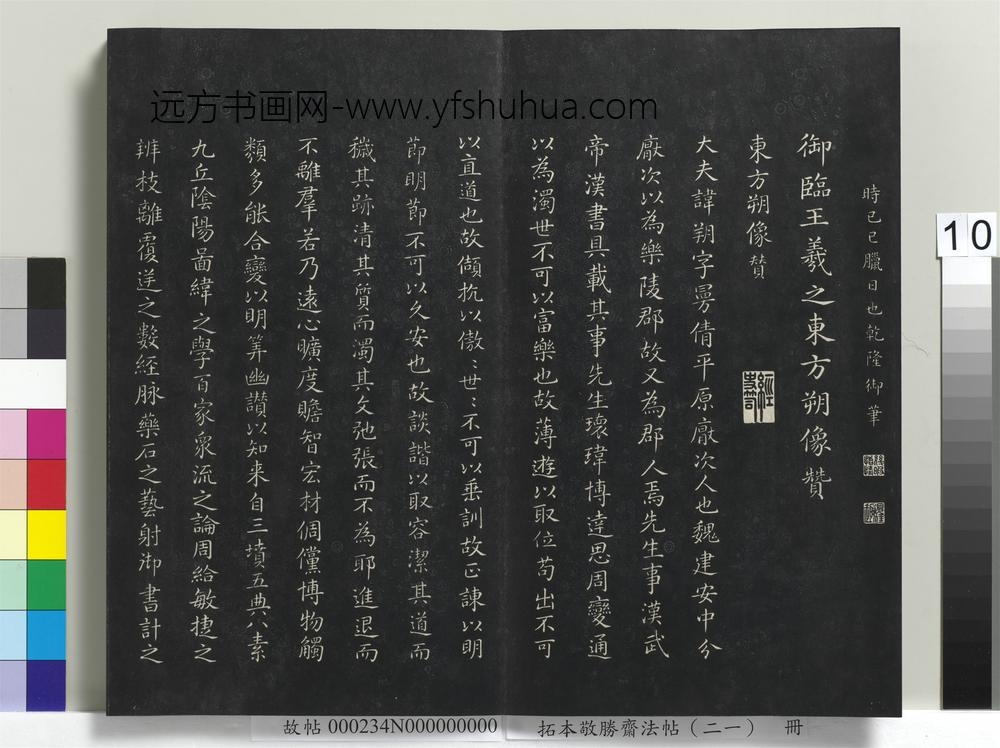 远方书画网-www.yfshuhua.com
時己巳臘日也乾隆御筆
御臨王羲之東方朔像贊
東方朔像贊
大夫諱朔字曼倩平原厭次人也魏建安中分
厭次以為樂陵郡故又為郡人焉先生事漢武
帝漢書具載其事先生瓌瑋博達思周變通
以為濁世不可以富樂也故薄遊以取位苟出不可
以直道也故頡抗以傲〻世〻不可以垂訓故正諫以明
節明節不可以久安也故談諧以取容潔其道而
穢其跡清其質而濁其文弛張而不為耶進退而
不離羣若乃遠心曠度贍智宏材倜儻博物觸
類多能合變以明筭幽讚以知来自三墳五典八素
九丘陰陽圖緯之學百家衆流之論周給敏捷之
辨技離覆逆之數経脉藥石之藝射御書計之
10
故帖 000234N000000000
拓本敬勝齋法帖（二一） 冊